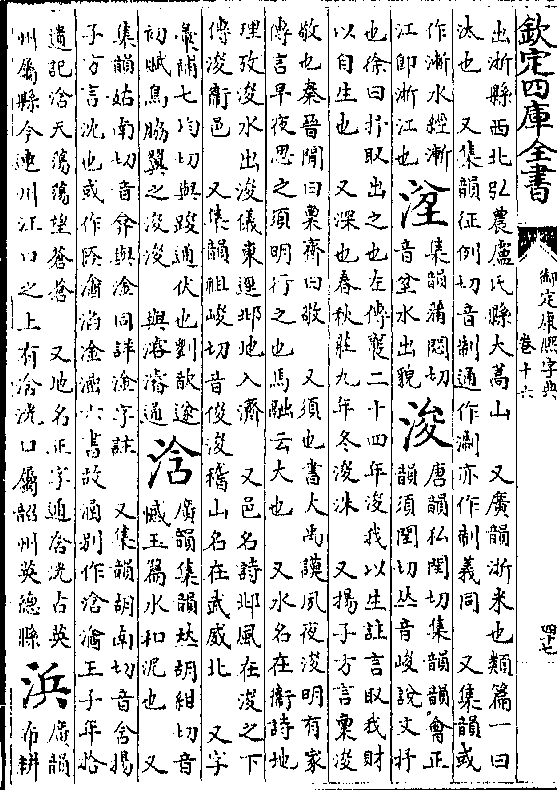 欽定四庫全書
御定康熙字典
卷十六
四十七
出浙縣西北弘農盧氏縣大嵩山　又廣韻浙米也類篇一曰
汰也　又集韻征例切音制通作淛亦作制義同　又集韻或
作漸水經漸
江即浙江也
集韻蒲悶切
音坌水出貌
浚
唐韻私閏切集韻韻會正
韻須閏切𠀤音峻說文抒
也徐曰抒取出之也左傳襄二十四年浚我以生註言取我財
以自生也　又深也春秋莊九年冬浚洙　又揚子方言稟浚
敬也秦晉閒曰稟齊曰敬　又須也書大禹謨夙夜浚明有家
傳言早夜思之須明行之也馬融云大也　又水名在衞詩地
理攷浚水出浚儀東逕邶地入濟　又邑名詩邶風在浚之下
傳浚衞邑　又集韻祖峻切音俊浚稽山名在武威北　又字
彙補七均切與踆通伏也劉歆遂
初賦鳥脇翼之浚浚　與濬通
浛
廣韻集韻𠀤胡紺切音
憾玉篇水和泥也　又
集韻姑南切音弇與淦同詳淦字註　又集韻胡南切音含揚
子方言沈也或作 六書故涵別作浛 王子年拾
遺記浛天蕩蕩望蒼蒼　又地名正字通浛洸古英
州屬縣今連州江口之上有浛洸口屬韶州英德縣
浜
廣韻
布耕